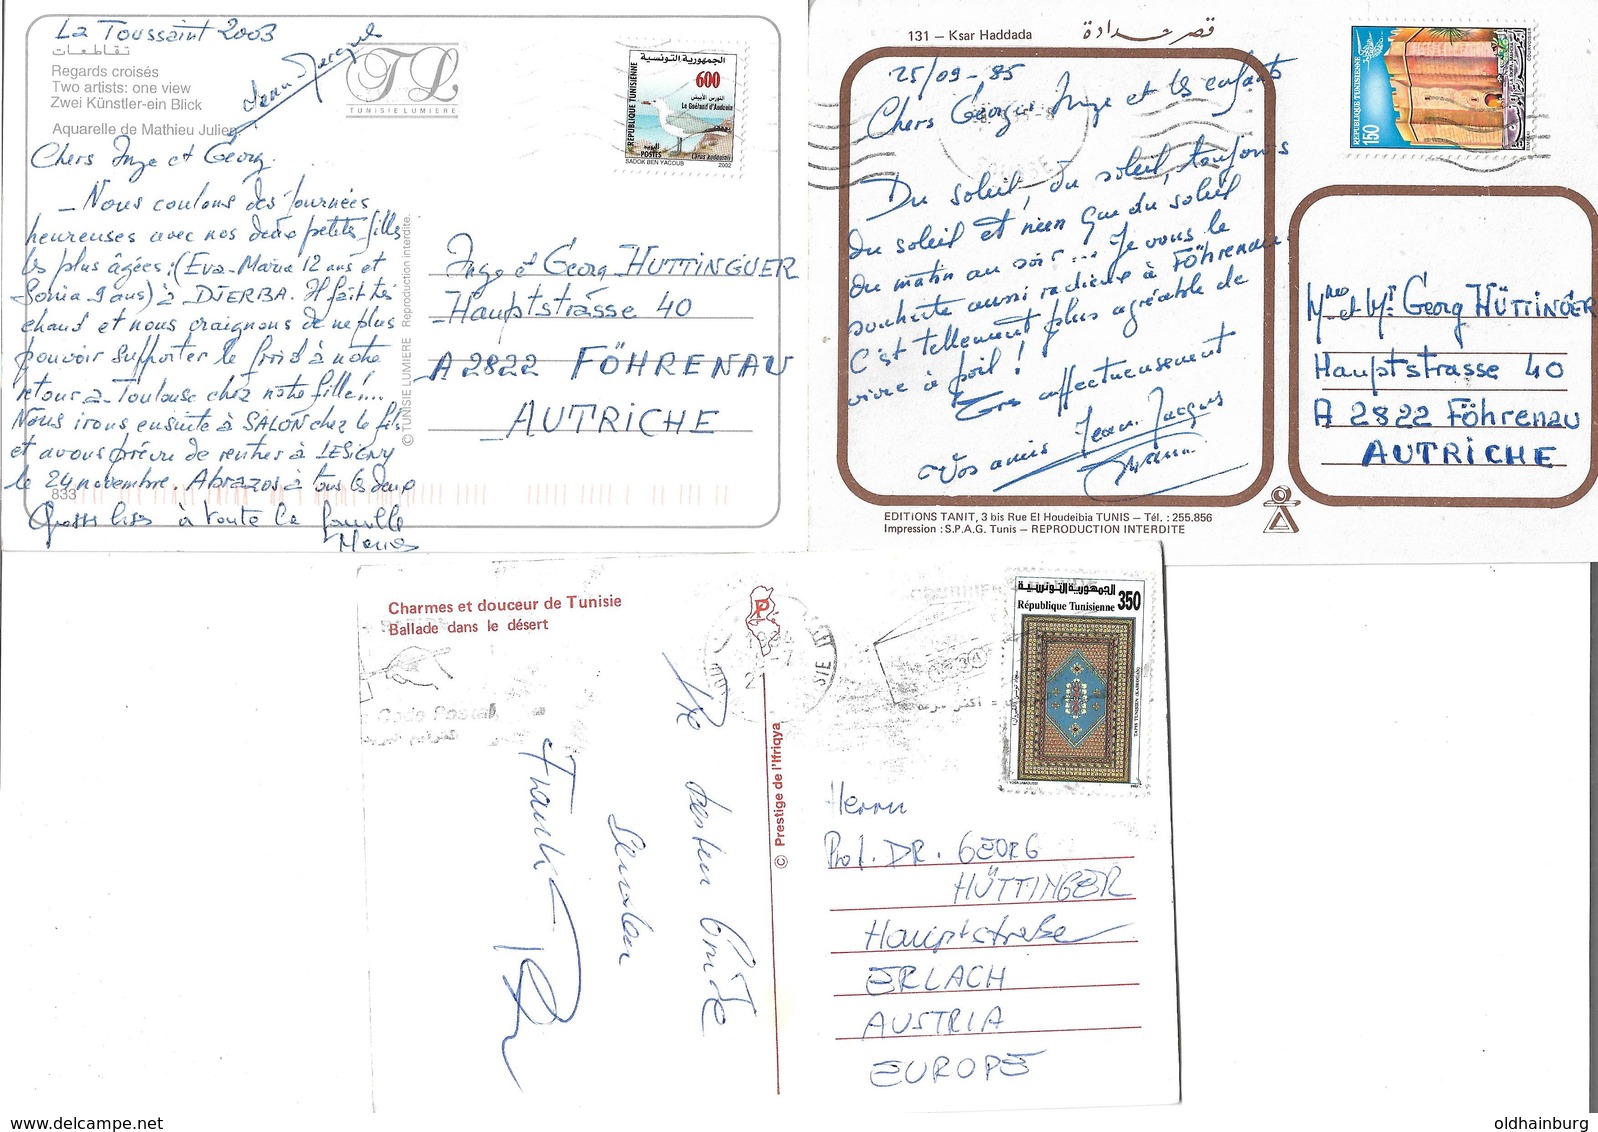 La Toussaint 2003
تقاطعات
Regards croisés
Two artists: one view
Zwei Künstler-ein Blick
Aquarelle de Mathieu Julien
Jean Jacques
TL
TUNISIE LUMIERE
الجمهورية التونسية
600
REPUBLIQUE TUNISIENNE
النورس الأبيض
Le Goéland d'Audouin
Larus audouinii
POSTES البريد
SADOK BEN YACOUB 2002
Chers Inge et Georg.
_ Nous coulons des journées
heureuses avec nos deux petites filles
les plus âgées : (Eva-Maria 12 ans et
Sonia 9 ans) à DJERBA. Il fait très
chaud et nous craignons de ne plus
pouvoir supporter le froid à notre
retour à Toulouse chez notre fille !...
Nous irons ensuite à SALON chez le fils
et avons prévu de rentrer à LESIGNY
le 24 novembre. Abrazos à tous les deux
Grosses bises à toute la famille
833
© TUNISIE LUMIERE Reproduction interdite.
Inge et Georg HUTTINGUER
Hauptstrasse 40
A 2822 FÖHRENAU
AUTRICHE
131 – Ksar Haddada
قصر حدادة
25/09-85
Chers Géorg, Inge et les enfants
Du soleil, du soleil, toujours
du soleil et rien que du soleil
du matin au soir ... Je vous le
souhaite aussi radieux à Föhrenau.
C'est tellement plus agréable de
vivre à poil !
Très affectueusement
Vos amis Jean-Jacques
REPUBLIQUE TUNISIENNE
150
Mme et Mr Georg HÜTTINGER
Hauptstrasse 40
A 2822 Föhrenau
AUTRICHE
EDITIONS TANIT, 3 bis Rue El Houdeibia TUNIS – Tél. : 255.856
Impression : S.P.A.G. Tunis – REPRODUCTION INTERDITE
Charmes et douceur de Tunisie
Ballade dans le désert
P
Code Postal
© Prestige de l'Ifriqya
الجمهورية التونسية
République Tunisienne 350
Die besten Grüße
senden
Herrn
Prof. DR. GEORG
HÜTTINGER
Hauptstraße
ERLACH
AUSTRIA
EUROPE
oldhainburg